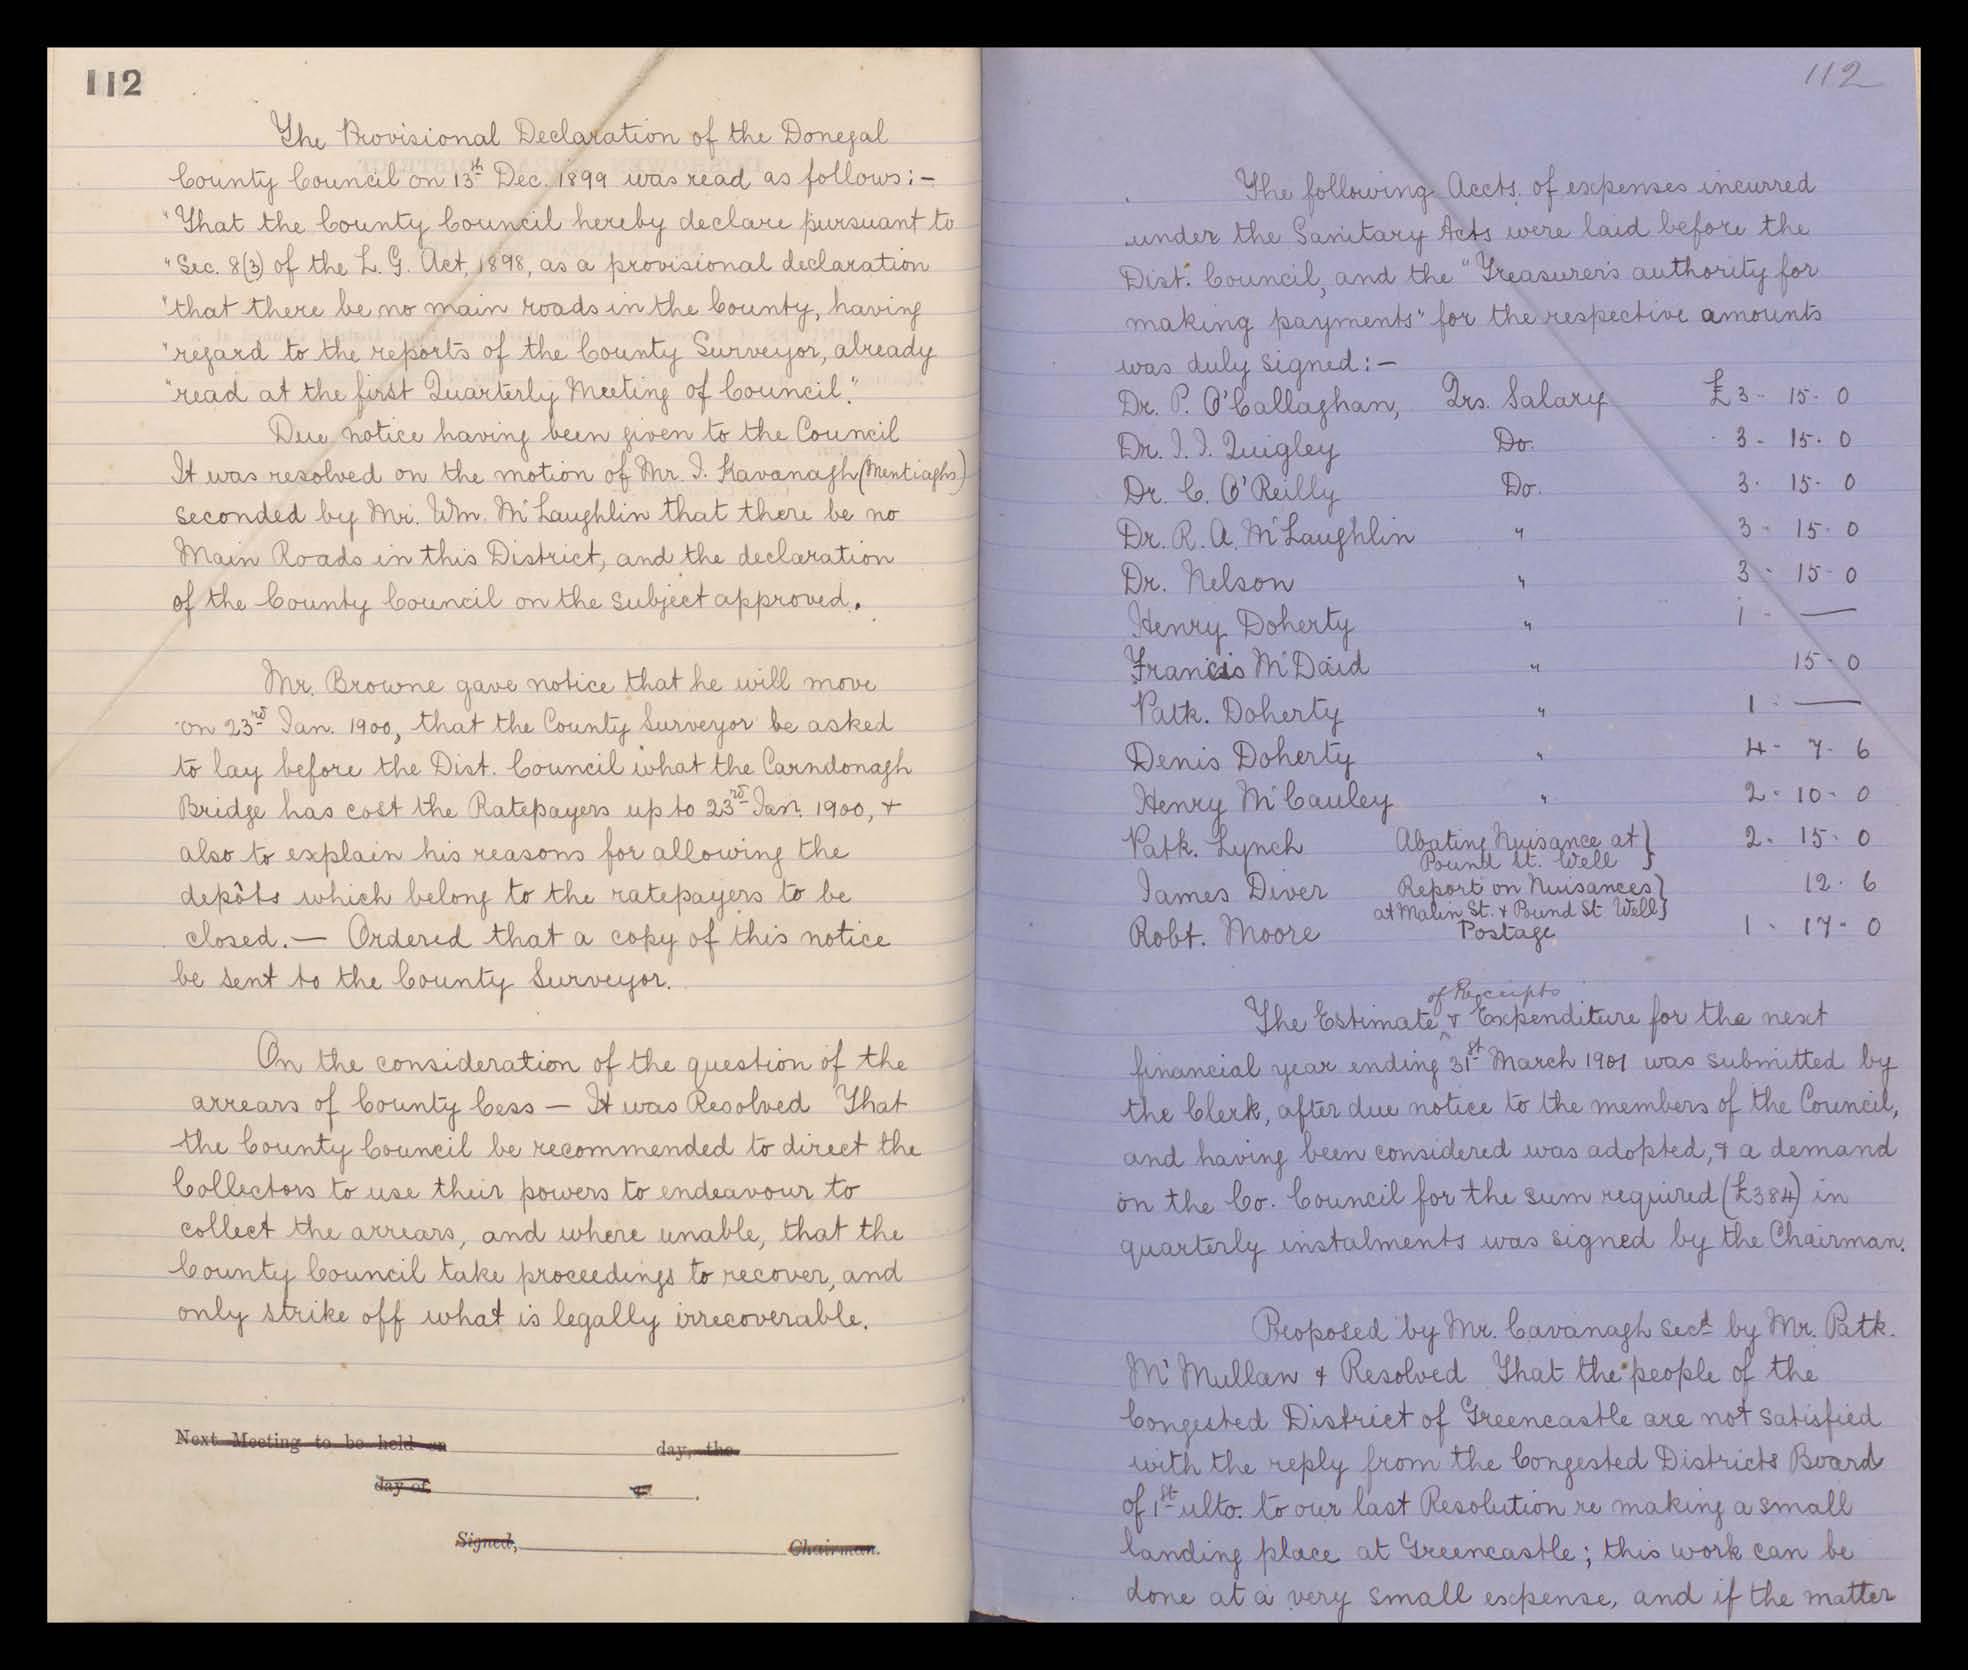 112
The Provisional Declaration of the Donegal
County Council on 13th Dec. 1899 was read as follows:-
"That the County Council hereby declare pursuant to
"Sec. 8(3) of the L. G. Act, 1898, as a provisional declaration
"that there be no main roads in the County, having
"regard to the reports of the County Surveyor, already
"read at the first Quarterly Meeting of Council."
Due notice having been given to the Council
It was resolved on the motion of Mr. J. Kavanagh (Mentiaghs)
seconded by Mr. Wm. McLaughlin that there be no
Main Roads in this District, and the declaration
of the County Council on the subject approved.
Mr. Browne gave notice that he will move
on 23rd Jan. 1900, that the County Surveyor be asked
to lay before the Dist. Council what the Carndonagh
Bridge has cost the Ratepayers up to 23rd Jan. 1900, +
also to explain his reasons for allowing the
depôts which belong to the ratepayers to be
closed. — Ordered that a copy of this notice
be sent to the County Surveyor.
On the consideration of the question of the
arrears of County Cess — It was Resolved That
the County Council be recommended to direct the
Collectors to use their powers to endeavour to
collect the arrears, and where unable, that the
County Council take proceedings to recover, and
only strike off what is legally irrecoverable.
Next Meeting to be held on day, the
day of 
Signed, Chairman.
112
The following Accts. of expenses incurred
under the Sanitary Acts were laid before the
Dist. Council, and the "Treasurer's authority for
making payments" for the respective amounts
was duly signed:-
Dr. P. O'Callaghan, Qrs. Salary £3 - 15 - 0
Dr. J. J. Quigley Do. 3 - 15 - 0
Dr. C. O'Reilly Do. 3 - 15 - 0
Dr. R. A. McLaughlin " 3 - 15 - 0
Dr. Nelson " 3 - 15 - 0
Henry Doherty " 1 - —
Francis McDaid " 15 - 0
Patk. Doherty " 1 - —
Denis Doherty " 4 - 7 - 6
Henry McCauley " 2 - 10 - 0
Patk. Lynch Abating Nuisance at } 2 - 15 - 0
Pound St. Well }
James Diver Report on Nuisances } 12 - 6
at Malin St. + Pound St Well }
Robt. Moore Postage 1 - 17 - 0
of Receipts
The Estimate ^ + Expenditure for the next
financial year ending 31st March 1901 was submitted by
the Clerk, after due notice to the members of the Council,
and having been considered was adopted, + a demand
on the Co. Council for the sum required (£384) in
quarterly instalments was signed by the Chairman.
Proposed by Mr. Cavanagh secd by Mr. Patk.
McMullan + Resolved That the people of the
Congested District of Greencastle are not satisfied
with the reply from the Congested Districts Board
of 1st ulto. to our last Resolution re making a small
landing place at Greencastle; this work can be
done at a very small expense, and if the matter